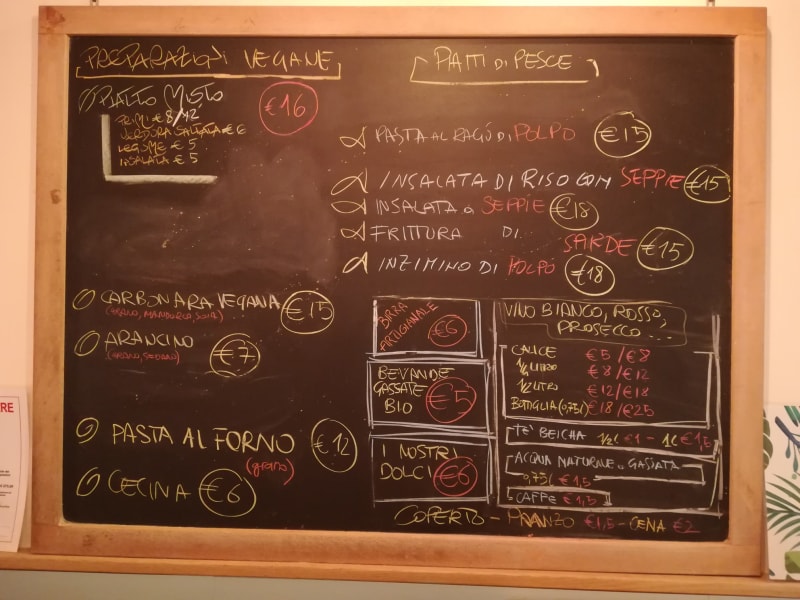 PREPARAZIONI VEGANE
PIATTO MISTO €16
PRIMI € 8/12
VERDURA SALTATA € 6
LEGUME € 5
INSALATA € 5
CARBONARA VEGANA €15
ARANCINO €7
PASTA AL FORNO €12
(grano)
CECINA €6
PIATTI DI PESCE
PASTA AL RAGÙ DI POLPO €15
INSALATA DI RISO CON SEPPIE €15
INSALATA di SEPPIE €18
FRITTURA DI SARDE €15
INZIMINO DI POLPO €18
BIRRA
ARTIGIANALE €6
BEVANDE
GASSATE
BIO €5
I NOSTRI
DOLCI €6
VINO BIANCO, ROSSO,
PROSECCO...
CALICE €5/€8
1/4 LITRO €8/€12
1/2 LITRO €12/€18
BOTTIGLIA (0,75l) €18/€25
TÈ BEICHA 1/2l €1 - 1l €1,5
ACQUA NATURALE o GASSATA
0,75l €1,5
CAFFÈ €1,5
COPERTO - PRANZO €1,5 - CENA €2